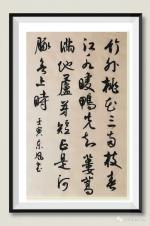 竹外桃花三两枝春
江水暖鴨先知蔞蒿
滿地蘆芽短正是河
豚欲上時 壬寅